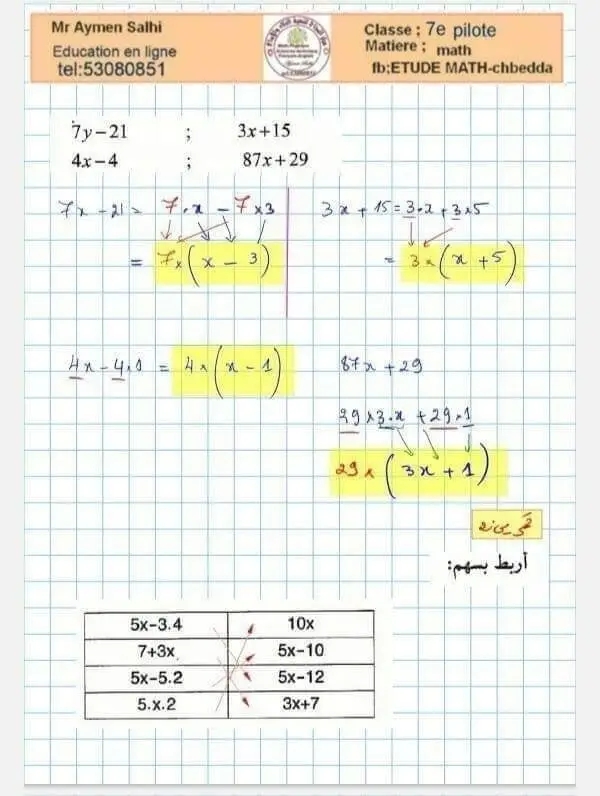 Mr Aymen Salhi
Education en ligne
tel:53080851
Classe ; 7e pilote
Matiere ; math
fb;ETUDE MATH-chbedda
7y−21 ; 3x+15
4x−4 ; 87x+29
7x − 21 = 7 . x − 7 × 3
= 7 × ( x − 3 )
3x + 15 = 3 . x + 3 × 5
= 3 × ( x + 5 )
4x − 4 . 1 = 4 × ( x − 1 )
87x + 29
29 × 3 . x + 29 . 1
29 × ( 3x + 1 )
أربط بسهم:
5x−3.4 10x
7+3x 5x−10
5x−5.2 5x−12
5.x.2 3x+7